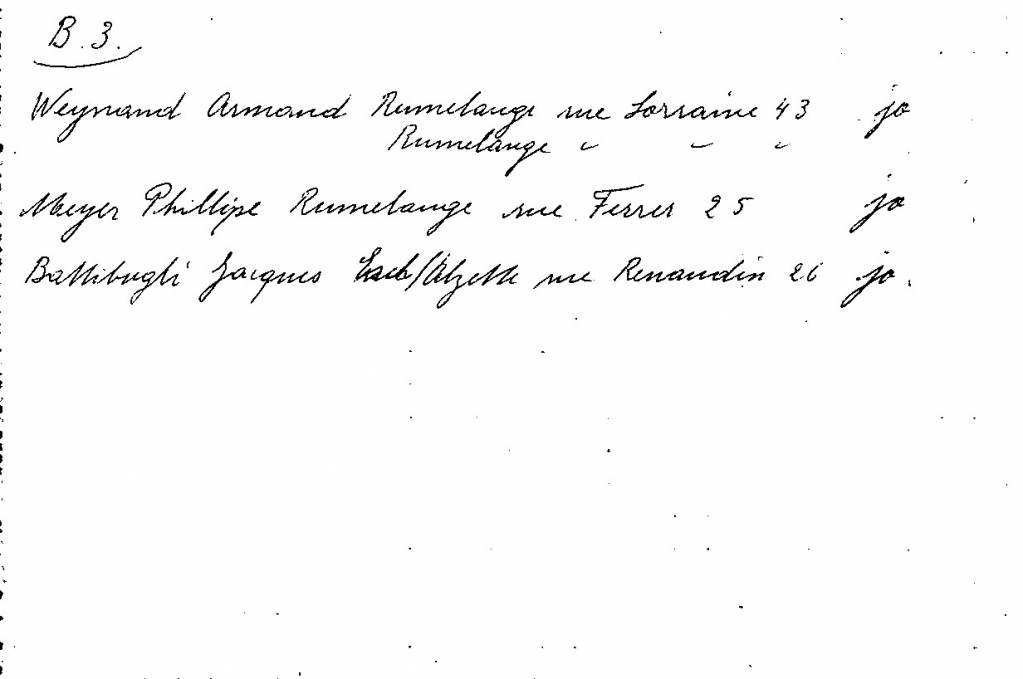 B.3.
Weynand Armand Rumelange rue Lorraine 43 jo
Rumelange " " "
Meyer Phillipe Rumelange rue Ferrer 25 jo
Battibugli Jacques Esch/Alzette rue Renaudin 26 jo.